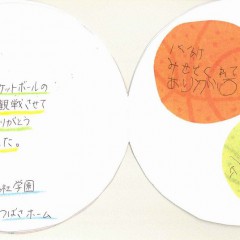 ケットボールの
観戦させて
りがとう
た。
学園
つばさホーム
バスケ
みせてくれて
ありがとう